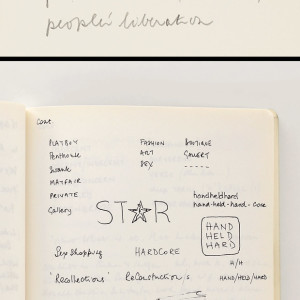 people's liberation
Cont.
PLAYBOY FASHION BOUTIQUE
Penthouse ART
SEX -----
MAYFAIR
PRIVATE handheldhard
Gallery hand-held-hard-core
STAR
HAND
HELD
HARD
Sex Shopping HARDCORE
H/H
'Recollections' HAND/HELD/HARD